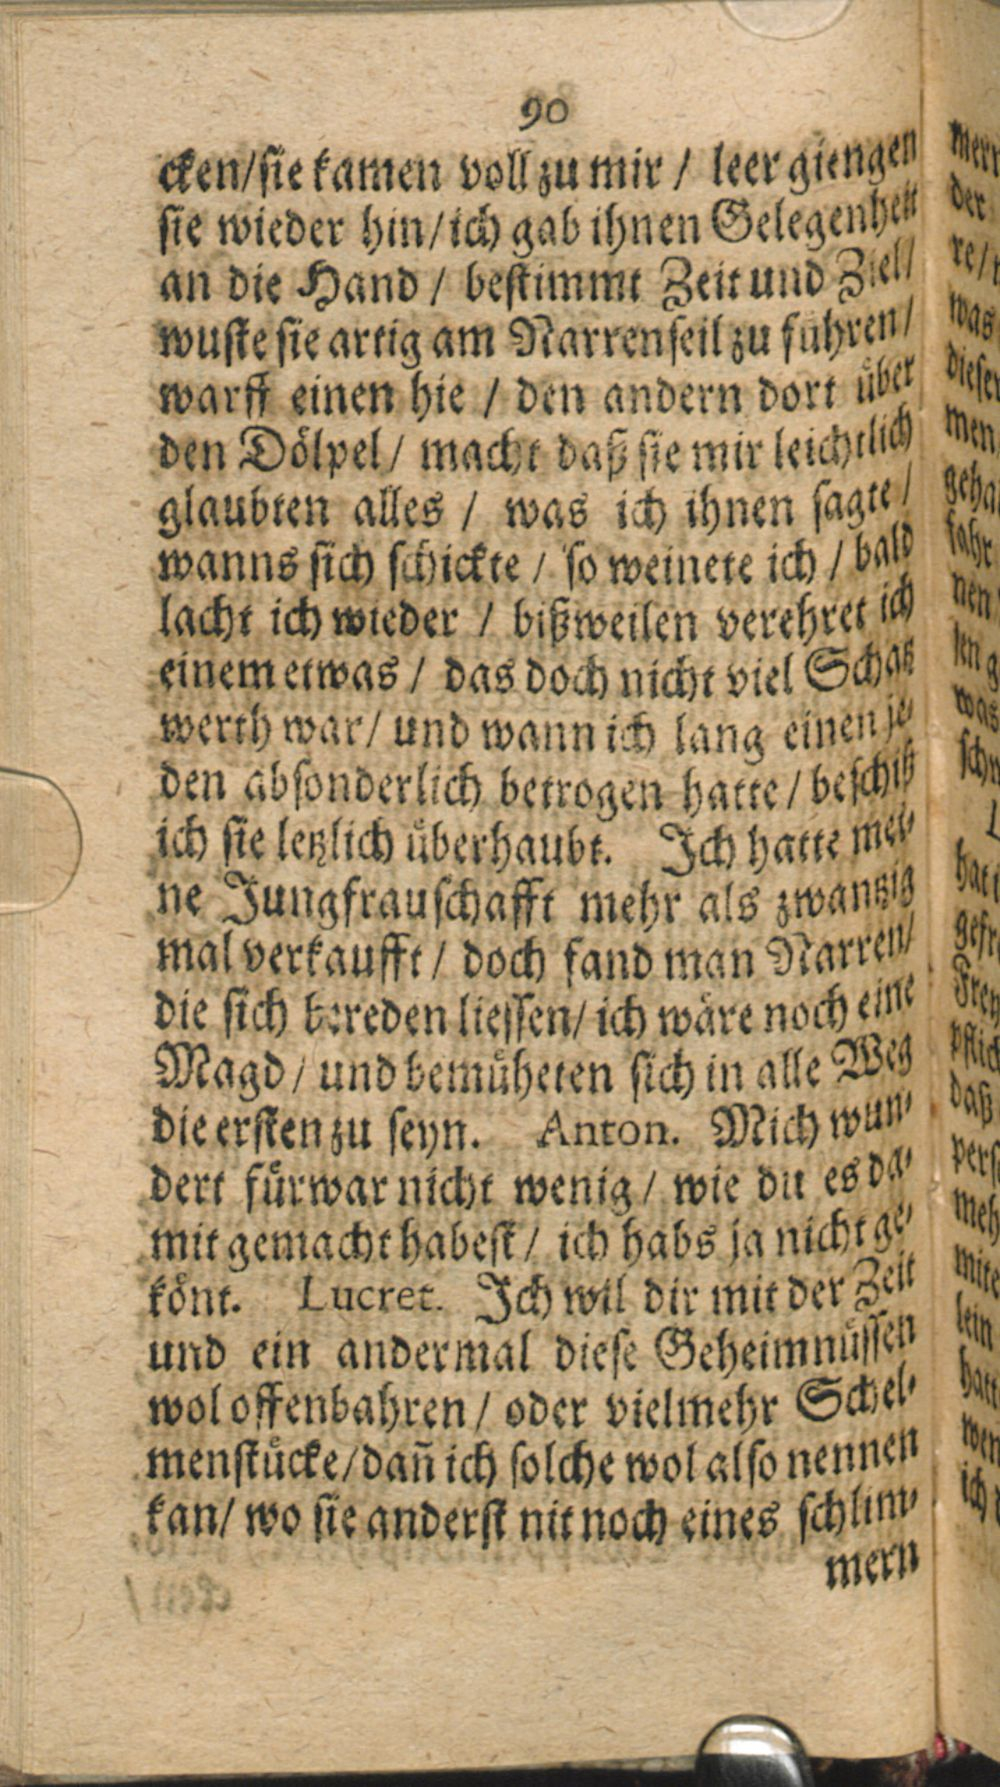 90
cken/sie kamen voll zu mir / leer giengen
sie wieder hin/ich gab ihnen Gelegenheit
an die Hand / bestimmt Zeit und Ziel/
wuste sie artig am Narrenseil zu führen/
warff einen hie / den andern dort über
den Dölpel/ macht daß sie mir leichtlich
glaubten alles / was ich ihnen sagte/
wanns sich schickte / so weinete ich / bald
lacht ich wieder / bißweilen verehret ich
einem etwas / das doch nicht viel Schatz
werth war/ und wann ich lang einen je-
den absonderlich betrogen hatte/ beschiß
ich sie letzlich überhaubt. Ich hatte mei-
ne Jungfrauschafft mehr als zwantzig
mal verkaufft/ doch fand man Narren/
die sich bereden liessen/ ich wäre noch eine
Magd/ und bemüheten sich in alle Weg
die ersten zu seyn. Anton. Mich wun-
dert fürwar nicht wenig/ wie du es da-
mit gemacht habest/ ich habs ja nicht ge-
könt. Lucret. Ich wil dir mit der Zeit
und ein andermal diese Geheimnüssen
wol offenbahren/ oder vielmehr Schel-
menstücke/dan̄ ich solche wol also nennen
kan/ wo sie anderst nit noch eines schlim-
mern